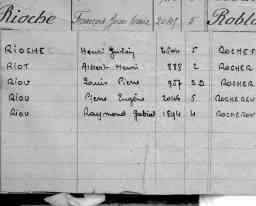 Rioche François Jean Marie 2048 5 Robla
RIOCHE Henri Gustin 2504 5 ROCHEF
RIOT Albert Henri 888 2 ROCHER
RIOU Louis Pierre 957 2D ROCHER
RIOU Pierre Eugène 2046 5 ROCHEREU
RIOU Raymond Gabriel 1894 4 ROCHERON